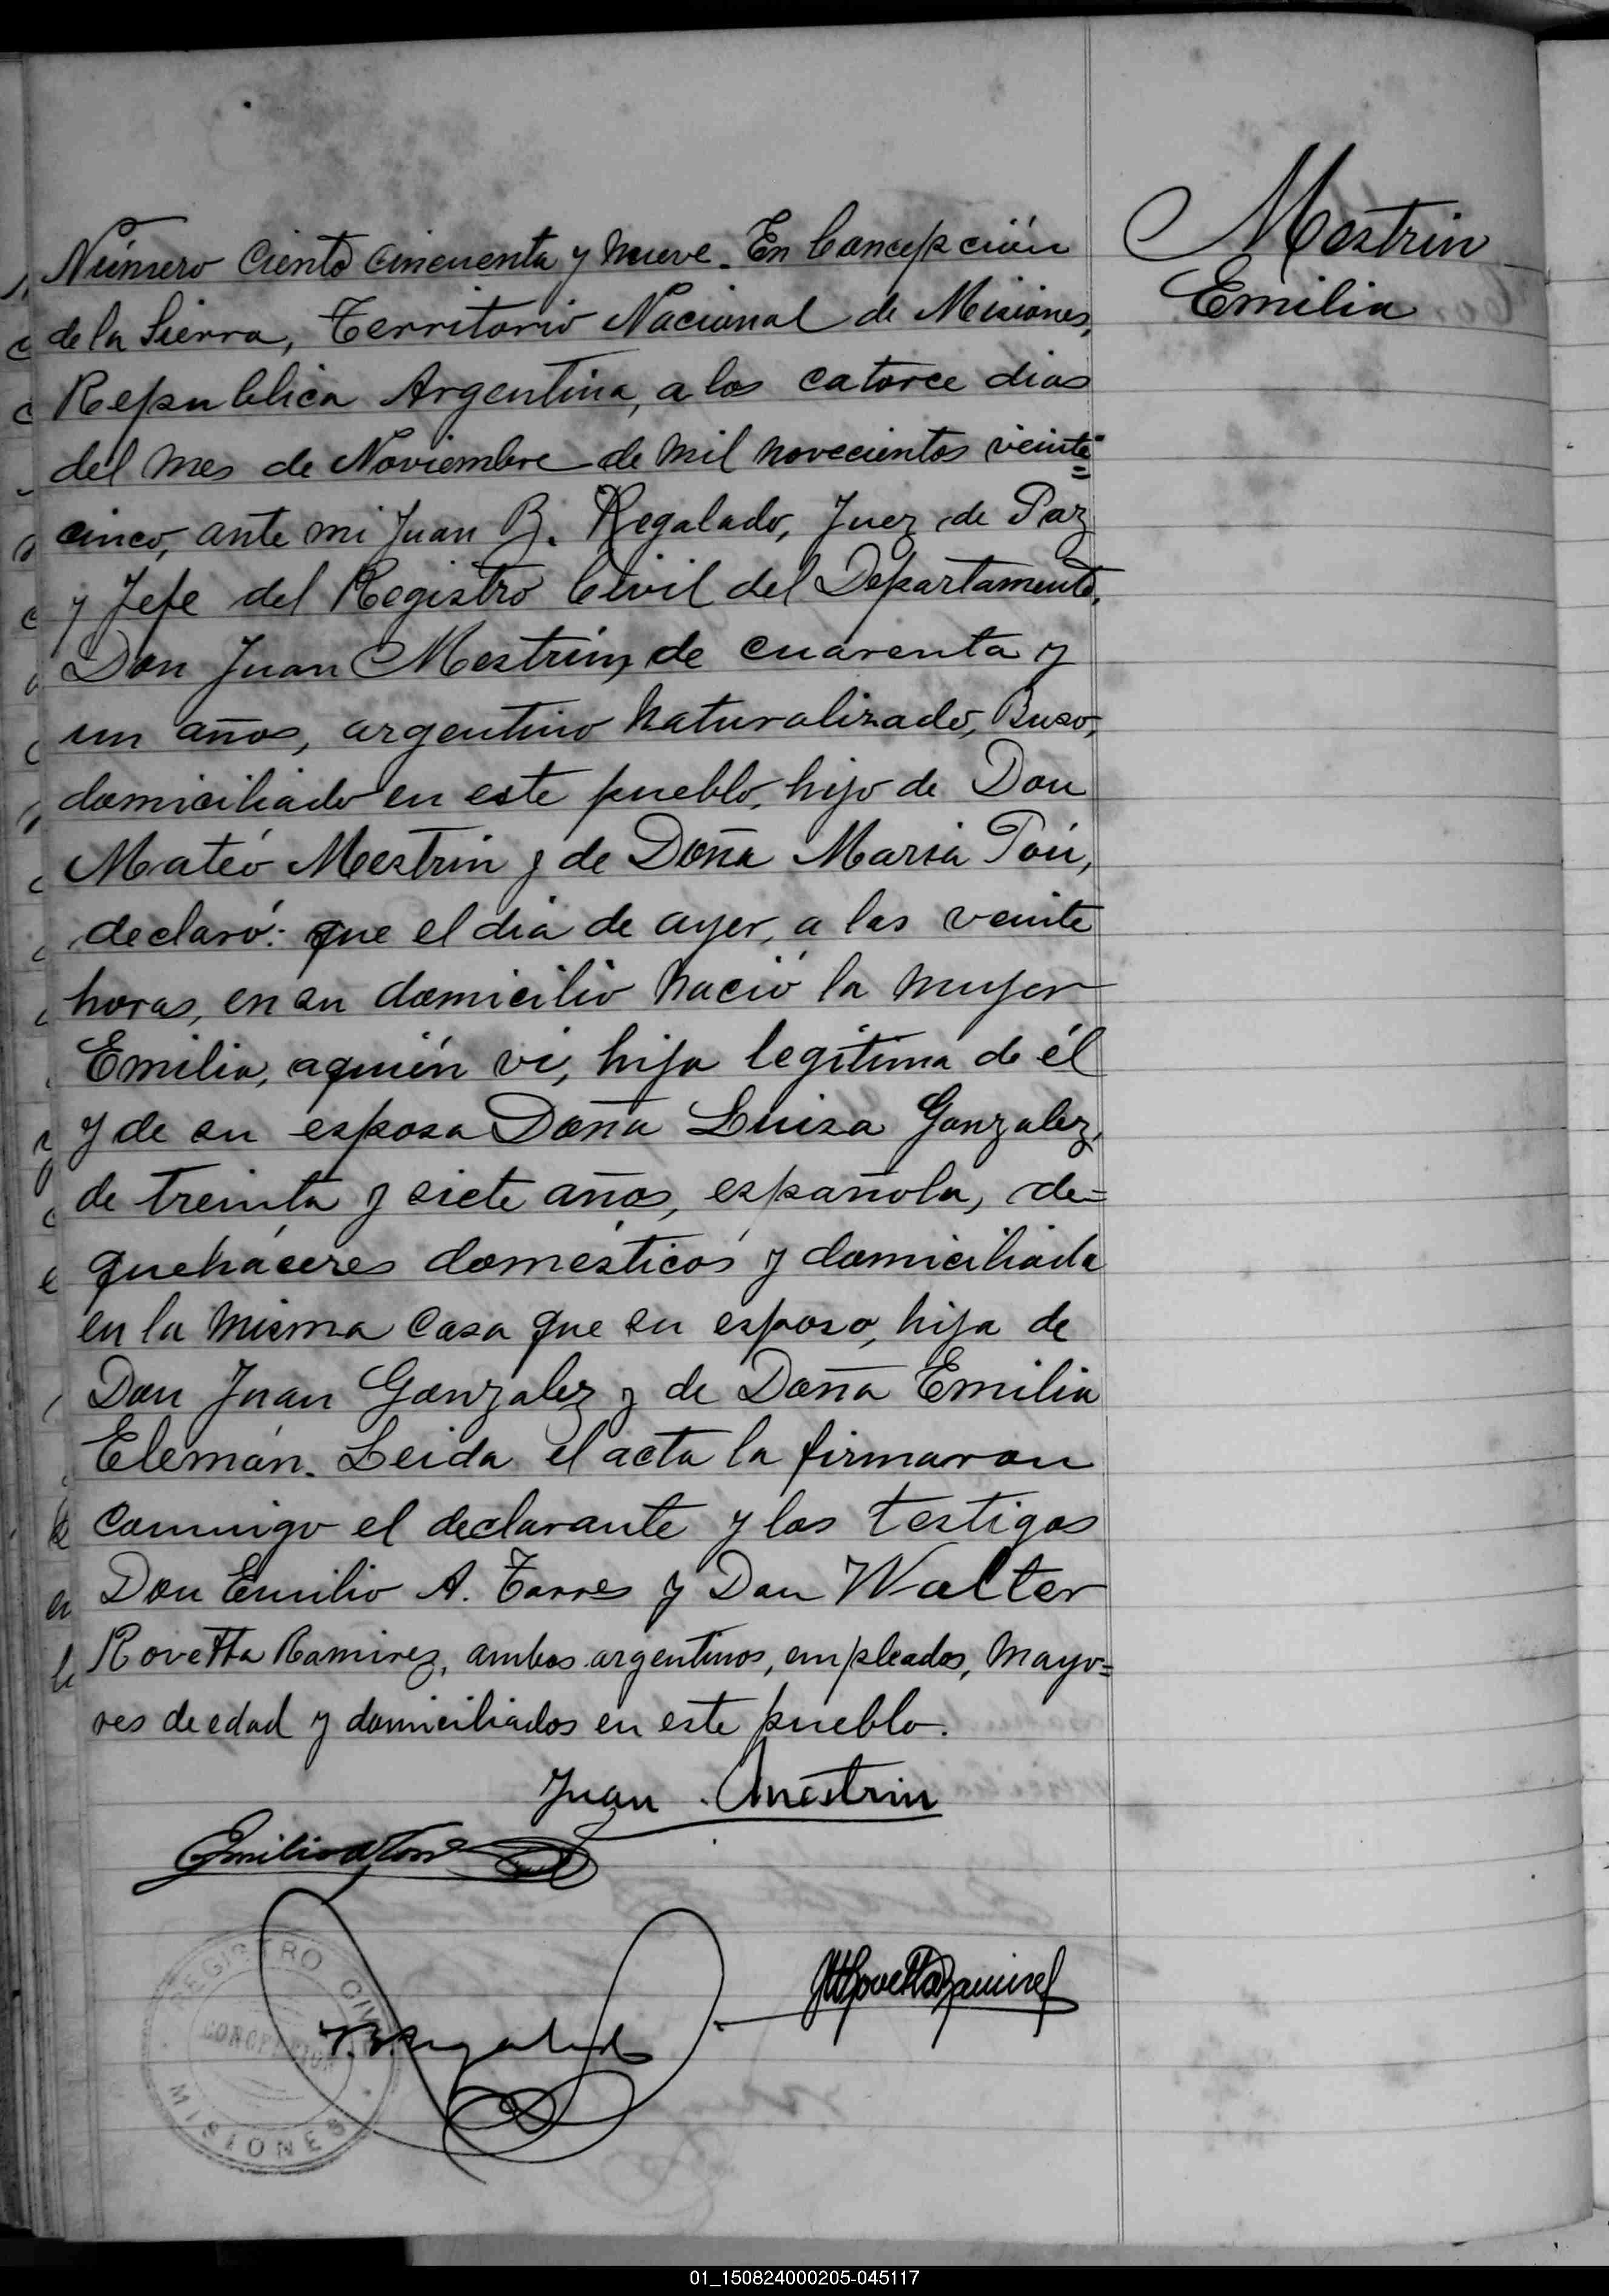 Mestrin
Emilia
Número Ciento Cincuenta y nueve. En Concepción
de la Sierra, Territorio Nacional de Misiones,
Republica Argentina, a los catorce dias
del mes de Noviembre de mil novecientos veinte=
cinco, ante mi Juan B. Regalado, Juez de Paz
y Jefe del Registro Civil del Departamento,
Don Juan Mestrin, de cuarenta y
un años, argentino naturalizado, Buzo,
domiciliado en este pueblo, hijo de Don
Mateo Mestrin y de Doña Maria
declaró: que el dia de ayer, a las veinte
horas, en su domicilio nació la mujer
Emilia, aquién vi, hija legítima de él
y de su esposa Doña Luisa Gonzalez,
de treinta y siete años, española, de=
quehaceres domésticos y domiciliada
en la misma casa que su esposo, hija de
Don Juan Gonzalez y de Doña Emilia
Elemán. Leida el acta la firmaron
conmigo el declarante y los testigos
Don Emilio A. Torres y Don Walter
Rovetta Ramirez, ambos argentinos, empleados, mayo=
res de edad y domiciliados en este pueblo.
Juan Mestrin
Emilio A Torres
Rovetta Ramirez
J.B. Regalado
REGISTRO CIVIL
CONCEPCION
MISIONES
01_150824000205-045117